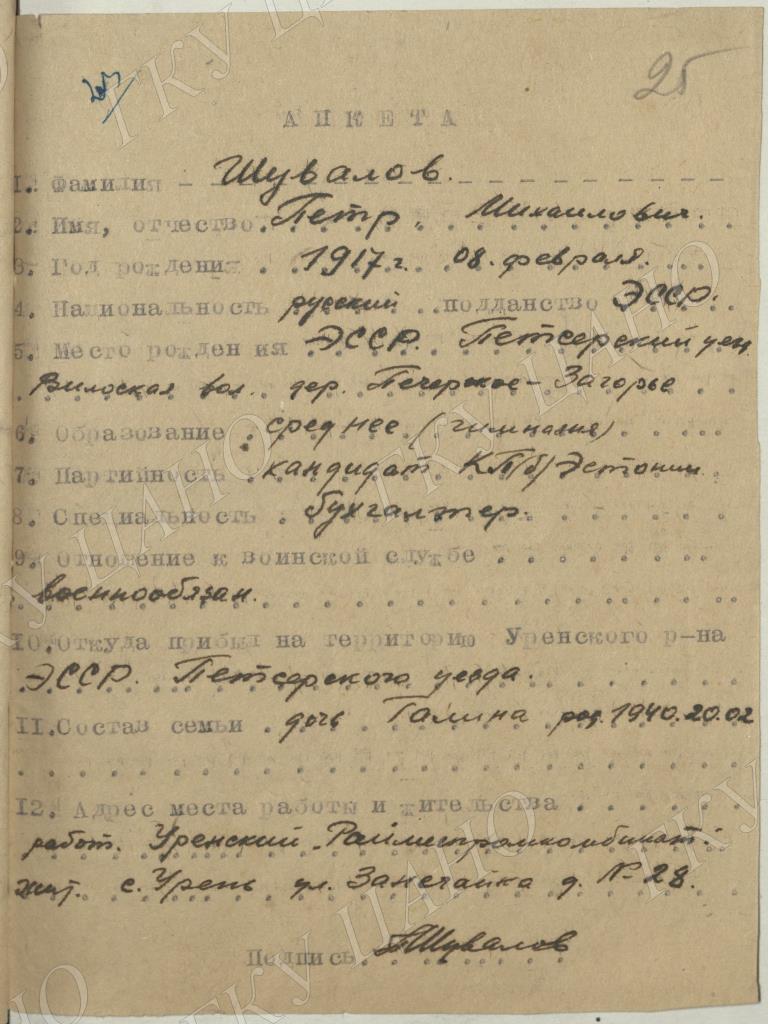 25
АНКЕТА
1. Фамилия - Шувалов.
2. Имя, отчество. Петр. Михаилович.
3. Год рождения. 1917 г. 08. февраля.
4. Национальность русский подданство ЭССР.
5. Место рождения ЭССР. Петсерский уезд
Вилоская вол. дер. Печерское - Загорье
6. Образование. среднее (гимназия)
7. Партийность. кандидат КП/б/ Эстонии
8. Специальность. бухгалтер.
9. Отношение к воинской службе
военнообязан.
10. Откуда прибыл на территорию Уренского р-на
ЭССР. Петсерского уезда.
11. Состав семьи. дочь Галина род. 1940.20.02
12. Адрес места работы и жительства
работ. Уренский Райместпромкомбинат.
жит. с. Урень ул. Занечайка д. № 28.
Подпись. ПШувалов
ГКУ ЦАНО